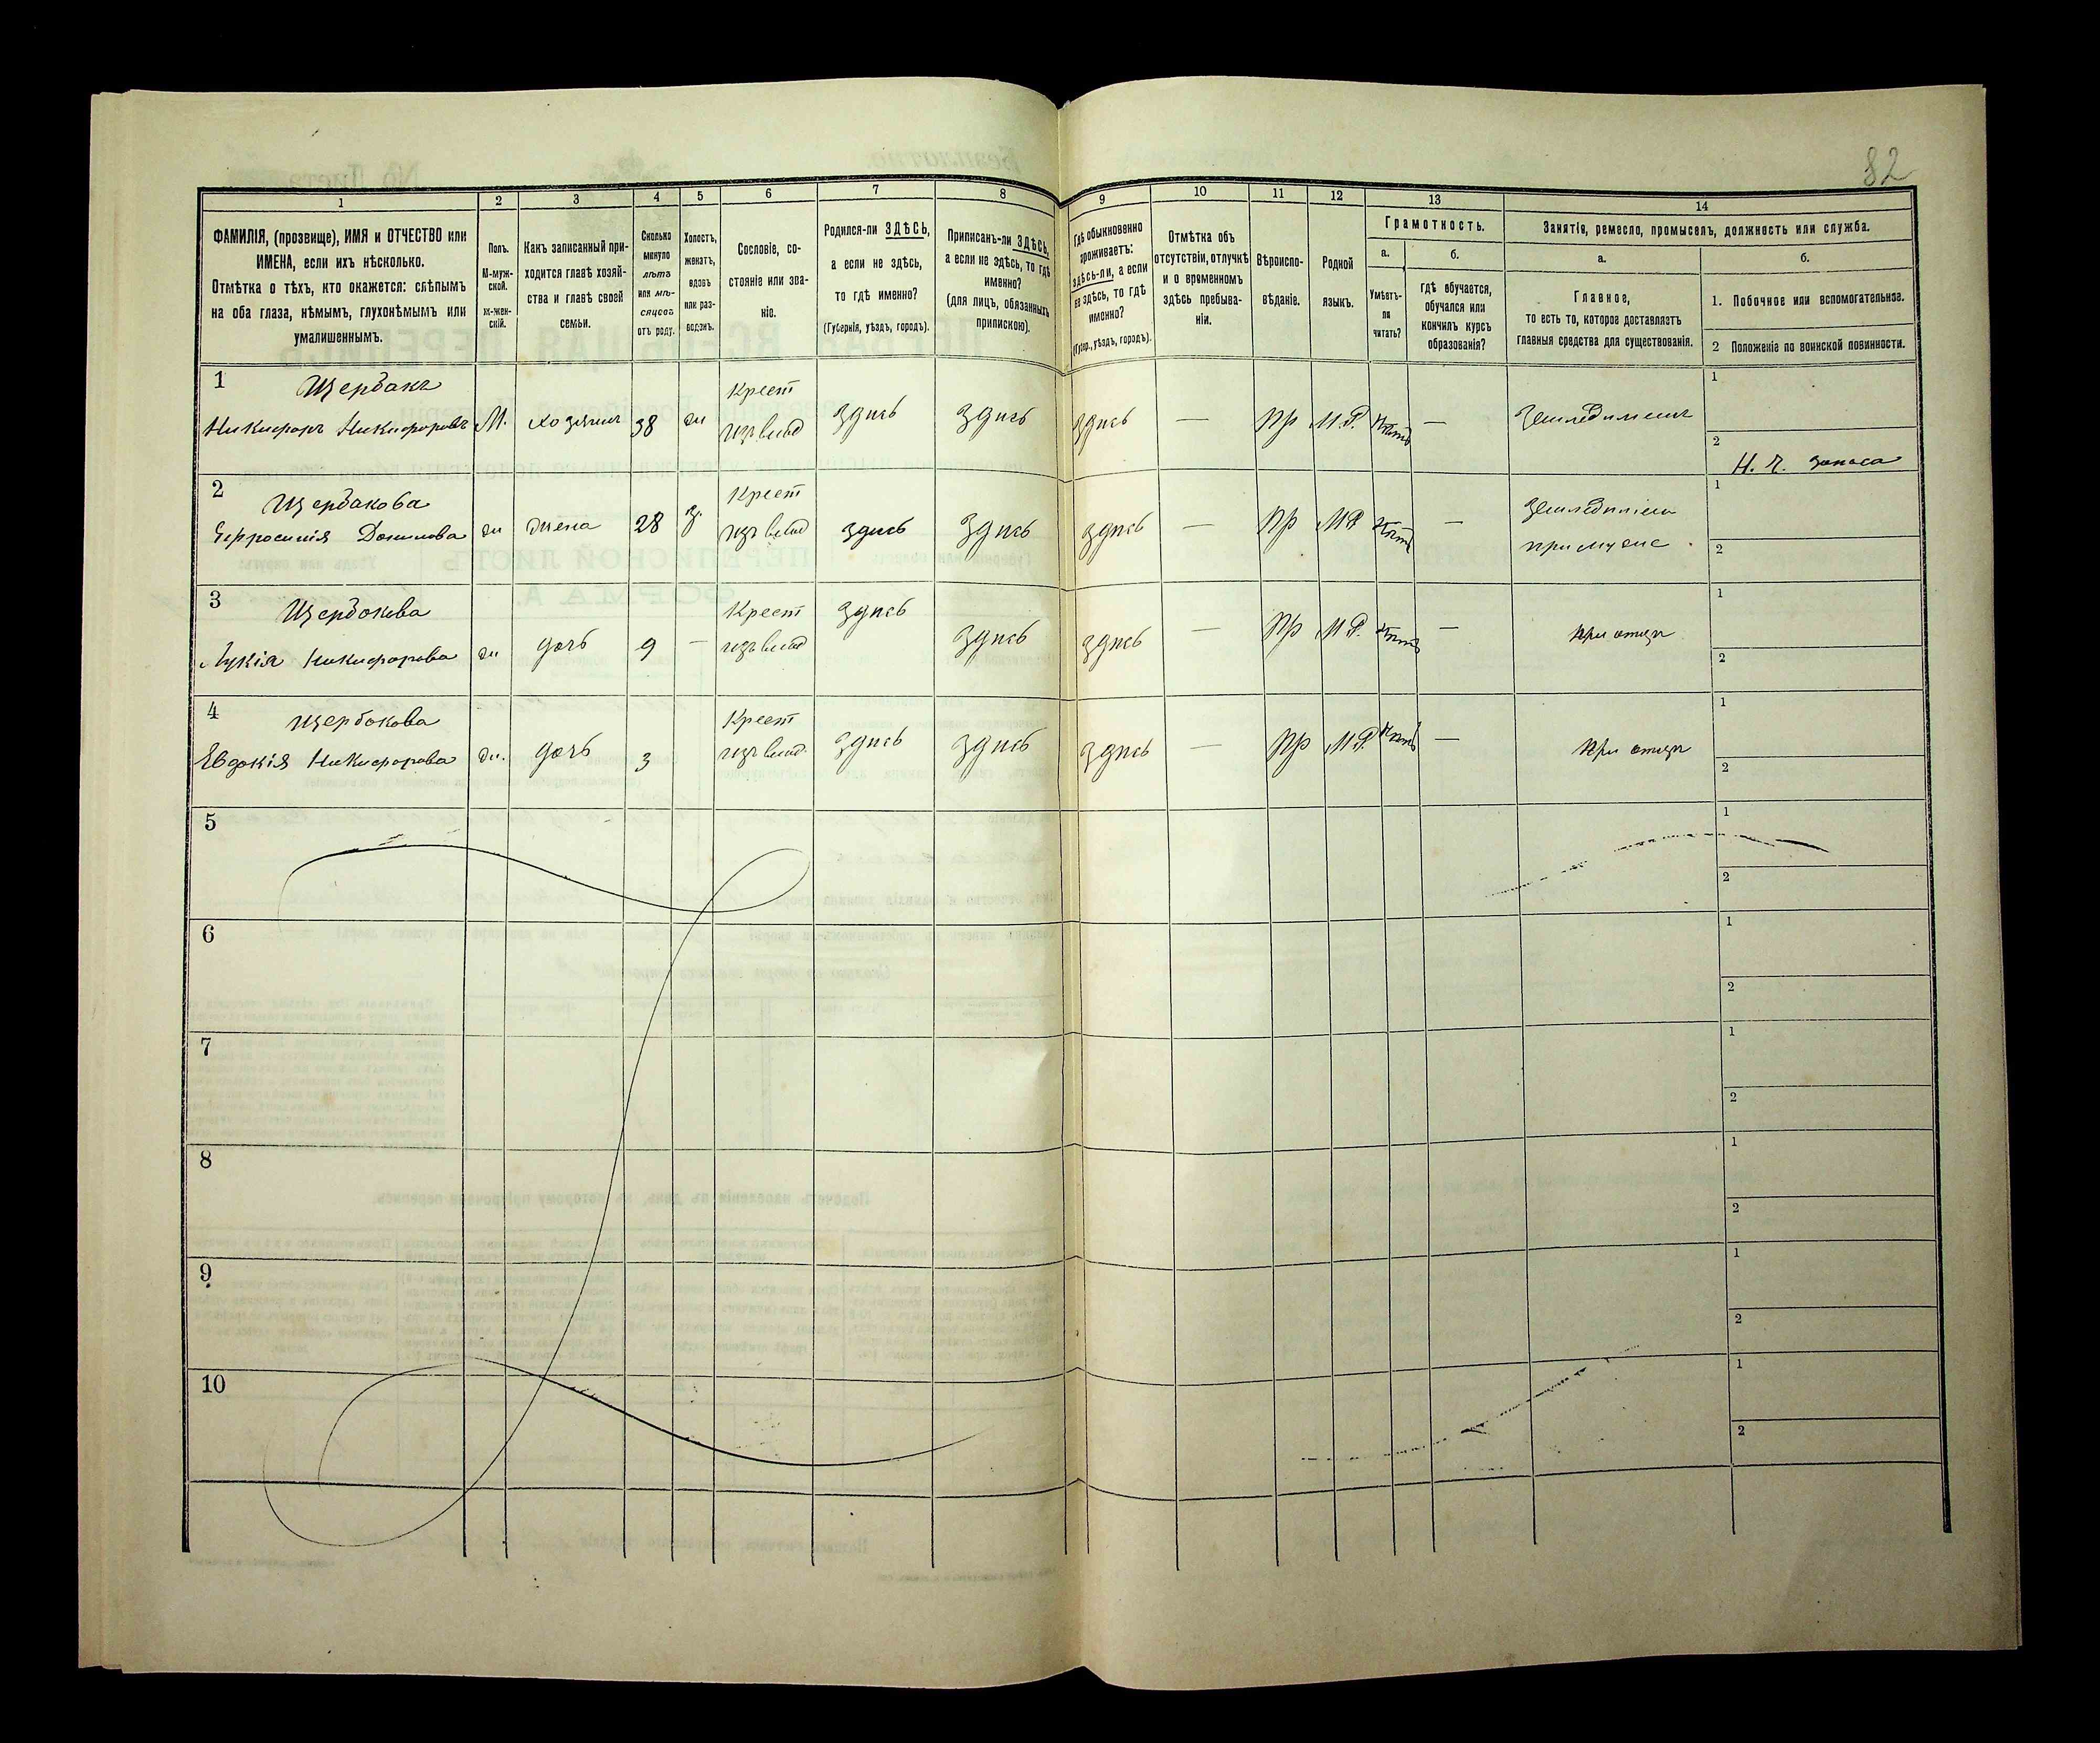 82
1
2
3
4
5
6
7
8
9
10
11
12
13
14
ФАМИЛІЯ, (прозвище), ИМЯ и ОТЧЕСТВО или
ИМЕНА, если ихъ нѣсколько.
Отмѣтка о тѣхъ, кто окажется: слѣпымъ
на оба глаза, нѣмымъ, глухонѣмымъ или
умалишеннымъ.
Полъ.
М-муж-
ской.
ж-жен-
скій.
Какъ записанный при-
ходится главѣ хозяй-
ства и главѣ своей
семьи.
Сколько
минуло
лѣтъ
или мѣ-
сяцевъ
отъ роду.
Холостъ,
женатъ,
вдовъ
или раз-
веденъ.
Сословіе, со-
стояніе или зва-
ніе.
Родился-ли ЗДѢСЬ,
а если не здѣсь,
то гдѣ именно?
(Губернія, уѣздъ, городъ).
Приписанъ-ли ЗДѢСЬ,
а если не здѣсь, то гдѣ
именно?
(для лицъ, обязанныхъ
припискою).
Гдѣ обыкновенно
проживаетъ:
здѣсь-ли, а если
не здѣсь, то гдѣ
именно?
(Губер., уѣздъ, городъ).
Отмѣтка объ
отсутствіи, отлучкѣ
и о временномъ
здѣсь пребыва-
ніи.
Вѣроиспо-
вѣданіе.
Родной
языкъ.
Грамотность.
а.
Умѣетъ-
ли
читать?
б.
гдѣ обучается,
обучался или
кончилъ курсъ
образованія?
Занятіе, ремесло, промыселъ, должность или служба.
а.
Главное,
то есть то, которое доставляетъ
главныя средства для существованія.
б.
1. Побочное или вспомогательное.
2 Положеніе по воинской повинности.
1
Щербакъ
Никифоръ Никифоровъ
М.
хозяинъ
38
ж
Крест
изъ влад
здѣсь
здѣсь
здѣсь
—
пр
М.Р.
нѣтъ
—
Земледѣлецъ
1
2
Н. ч. запаса
2
Щербакова
Ефросинія Данилова
ж
жена
28
з.
Крест
изъ влад
здѣсь
здѣсь
здѣсь
—
пр
М.Р.
нѣтъ
—
Земледѣліемъ
при мужѣ
1
2
3
Щербакова
Лукія Никифорова
ж
дочь
9
—
Крест
изъ влад
здѣсь
здѣсь
здѣсь
—
пр
М.Р.
нѣтъ
—
при отцѣ
1
2
4
Щербакова
Евдокія Никифорова
ж.
дочь
3
Крест
изъ влад
здѣсь
здѣсь
здѣсь
—
пр
М.Р.
нѣтъ
—
при отцѣ
1
2
5
1
2
6
1
2
7
1
2
8
1
2
9
1
2
10
1
2